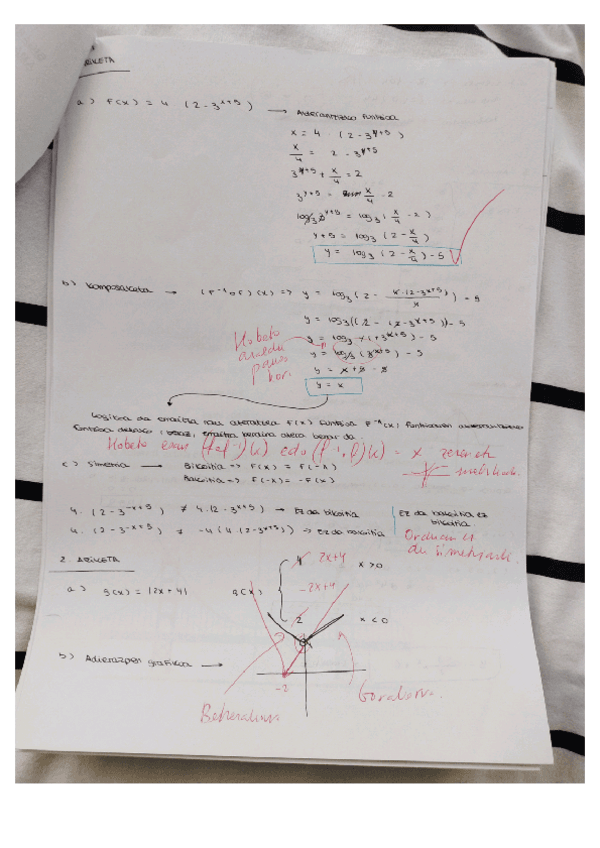 ARIKETA
a) F(x) = 4 (2-3^{x+5}) → Alderantzizko Funtzioa
x = 4 · (2-3^{y+5})
x/4 = 2 - 3^{y+5}
3^{y+5} + x/4 = 2
3^{y+5} = x/4 - 2
log₃ 3^{y+5} = log₃ (x/4 - 2)
y+5 = log₃ (2 - x/4)
y = log₃ (2 - x/4) - 5
b) Konposaketa → (F⁻¹ o F) (x) => y = log₃ (2 - 4·(2-3^{x+5})/4) - 5
y = log₃ (2 - (2-3^{x+5})) - 5
y = log₃ (+3^{x+5}) - 5
y = log₃ (3^{x+5}) - 5
y = x+5-5
y = x
Hobeto
pauso
hor.
Logikoa da emaitza hau ateratzea F(x) Funtzioa F⁻¹(x) Funtzioaren
Funtzioa delako, beraz, emaitza atera behar da.
Hobeto esan (f∘f⁻¹)(x) edo (f⁻¹∘f)(x) = x
c) Simetria → Bikoitia => F(x) = F(-x)
Bakoitia => F(-x) = -F(x)
4. (2-3^{-x+5}) ≠ 4.(2-3^{x+5}) → Ez da bikoitia
4. (2-3^{-x+5}) ≠ -4(4.(2-3^{x+5})) → Ez da bakoitia
Ez da bakoitia ez
bikoitia
Orduan ez
da simetrikoa.
2. ARIKETA
a) g(x) = |2x+4| g(x)
2x+4 x>0
-2x+4
x<0
b) Adierazpen grafikoa →
-2
Beherakorra
Gorakorra.